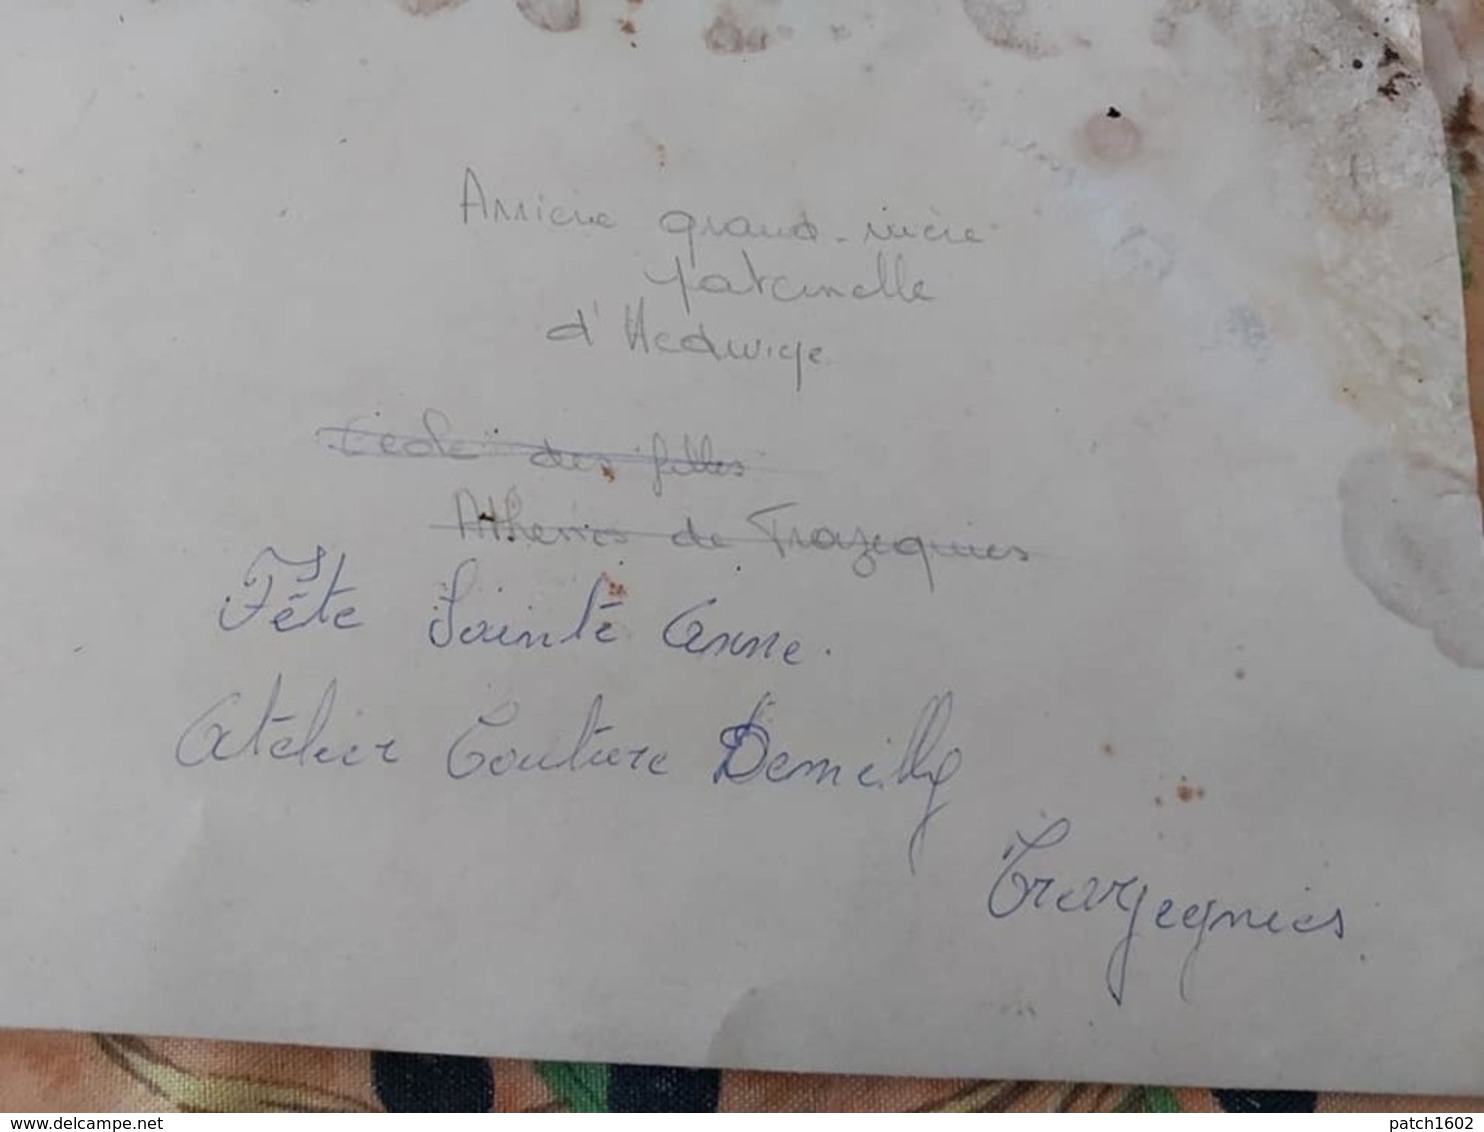 Arrière grand-mère
paternelle
d'Hedwige
Ecole des filles
Athenée de Trazegnies
Fête Sainte Anne.
Atelier Couture Demilly
Trazegnies.
www.delcampe.net
patch1602